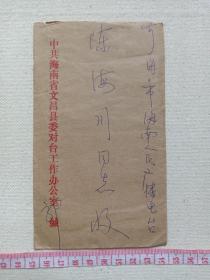 海口市海南人民广播电台
陈海川同志收
中共海南省文昌县委对台工作办公室 缄